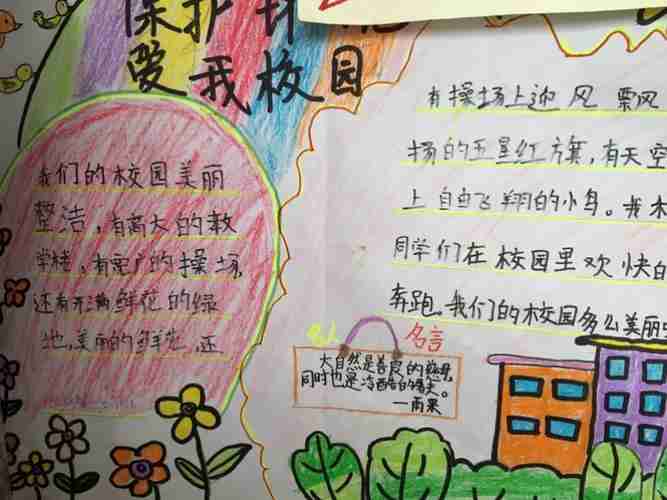 保护环
爱我校园
我们的校园美丽
整洁，有高大的教
学楼，有宽广的操场，
还有开满鲜花的绿
地，美丽的鲜花，还
有操场上迎风票风
扬的五星红方旗，有天空
上自由飞翔的小鸟。我
同学们在校园里欢快的
奔跑。我们的校园多么美丽
名人
名言
大自然是善良的慈母，
同时也是冷酷的屠夫。
—雨果